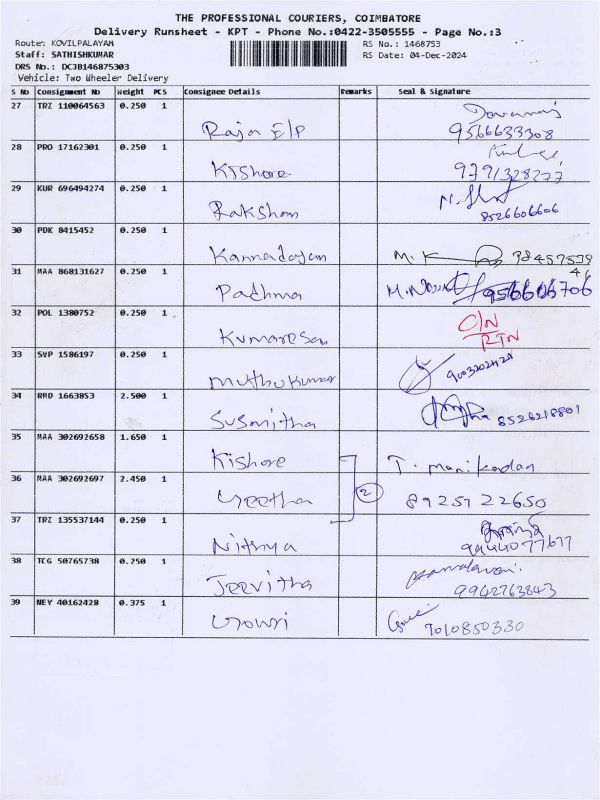 THE PROFESSIONAL COURIERS, COIMBATORE
Delivery Runsheet - KPT - Phone No.:0422-3505555 - Page No.:3
Route: KOVILPALAYAM RS No.: 1468753
Staff: SATHISHKUMAR RS Date: 04-Dec-2024
DRS No.: DCJB146875303
Vehicle: Two Wheeler Delivery
S No Consignment No Weight PCS Consignee Details Remarks Seal & Signature
27 TRZ 110064563 0.250 1
Raja E/P 9566633308
28 PRO 17162301 0.250 1
Kishore 9791328277
29 KUR 696494274 0.250 1
Rakshan 8526606606
30 PDK 8415452 0.250 1
Kannadasan M. K
31 MAA 868131627 0.250 1
Padhma 9566606706
32 POL 1380752 0.250 1
Kumaresan O/N RTN
33 SVP 1586197 0.250 1
Muthukumar
34 RMD 1663853 2.500 1
Susmitha 8526218801
35 MAA 302692658 1.650 1
Kishore T. Manikandan
36 MAA 302692697 2.450 1
Geetha 2 8925722650
37 TRZ 135537144 0.250 1
Nithya 9944077677
38 TCG 50765738 0.250 1
Jeevitha 9942763843
39 NEY 40162428 0.375 1
Gowri 7010850330